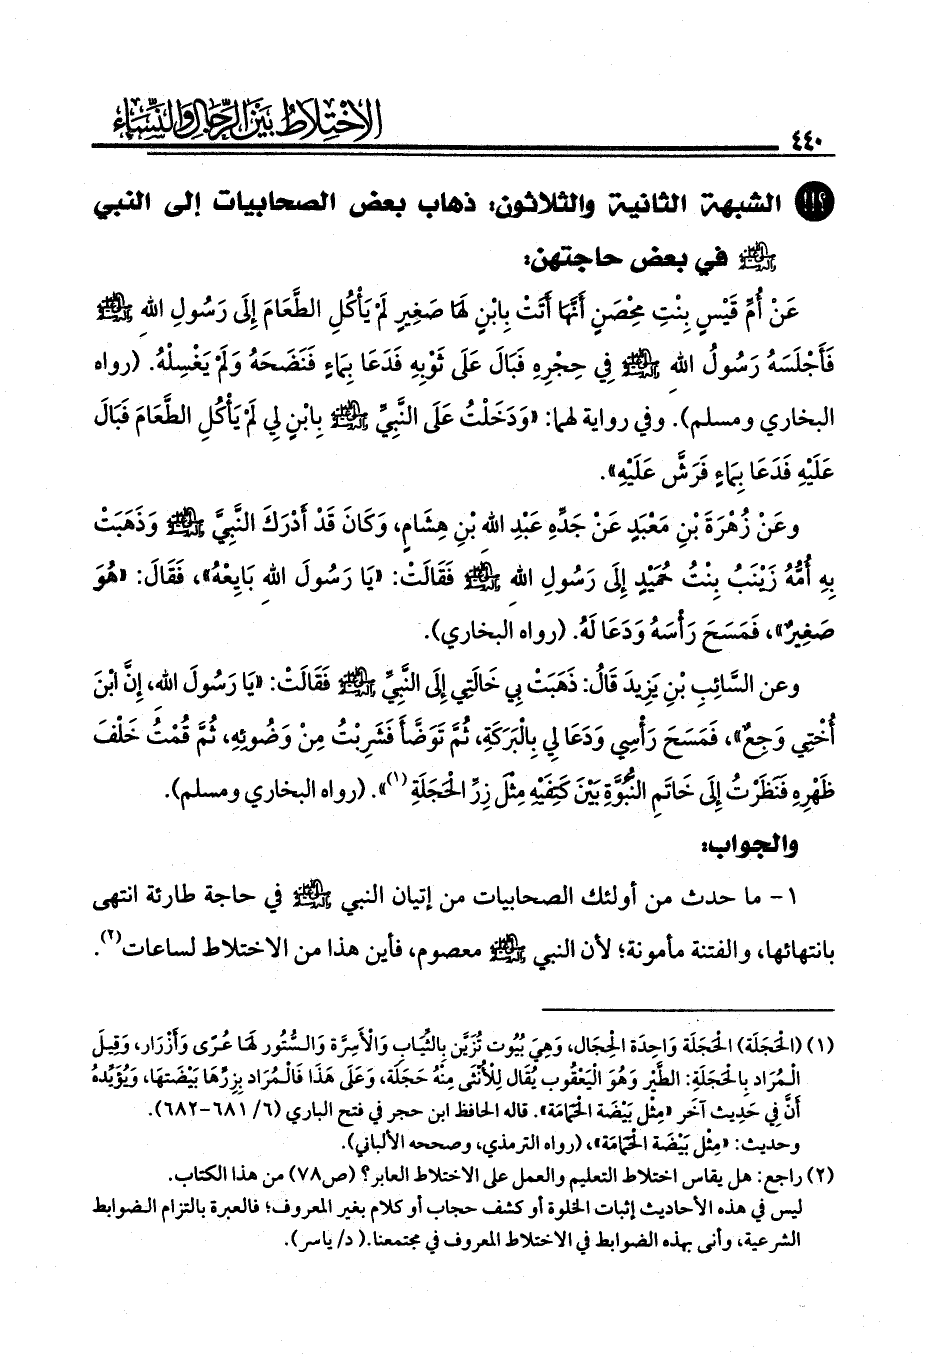 الاختلاط بين الرجال والنساء
٤٤٠
الشبهة الثانية والثلاثون: ذهاب بعض الصحابيات إلى النبي
ﷺ في بعض حاجتهن:
عَنْ أُمِّ قَيْسٍ بِنْتِ مِحْصَنٍ أَنَّهَا أَتَتْ بِابْنٍ لَهَا صَغِيرٍ لَمْ يَأْكُلِ الطَّعَامَ إِلَى رَسُولِ اللهِ ﷺ
فَأَجْلَسَهُ رَسُولُ اللهِ ﷺ فِي حِجْرِهِ فَبَالَ عَلَى ثَوْبِهِ فَدَعَا بِمَاءٍ فَنَضَحَهُ وَلَمْ يَغْسِلْهُ. (رواه
البخاري ومسلم). وفي رواية لهما: «وَدَخَلْتُ عَلَى النَّبِيِّ ﷺ بِابْنٍ لِي لَمْ يَأْكُلِ الطَّعَامَ فَبَالَ
عَلَيْهِ فَدَعَا بِمَاءٍ فَرَشَّ عَلَيْهِ».
وعَنْ زُهْرَةَ بْنِ مَعْبَدٍ عَنْ جَدِّهِ عَبْدِ اللهِ بْنِ هِشَامٍ، وَكَانَ قَدْ أَدْرَكَ النَّبِيَّ ﷺ وَذَهَبَتْ
بِهِ أُمُّهُ زَيْنَبُ بِنْتُ حُمَيْدٍ إِلَى رَسُولِ اللهِ ﷺ فَقَالَتْ: «يَا رَسُولَ اللهِ بَايِعْهُ»، فَقَالَ: «هُوَ
صَغِيرٌ»، فَمَسَحَ رَأْسَهُ وَدَعَا لَهُ. (رواه البخاري).
وعن السَّائِبِ بْنِ يَزِيدَ قَالُ: ذَهَبَتْ بِي خَالَتِي إِلَى النَّبِيِّ ﷺ فَقَالَتْ: «يَا رَسُولَ اللهِ، إِنَّ ابْنَ
أُخْتِي وَجِعٌ»، فَمَسَحَ رَأْسِي وَدَعَا لِي بِالْبَرَكَةِ، ثُمَّ تَوَضَّأَ فَشَرِبْتُ مِنْ وَضُوئِهِ، ثُمَّ قُمْتُ خَلْفَ
ظَهْرِهِ فَنَظَرْتُ إِلَى خَاتَمِ النُّبُوَّةِ بَيْنَ كَتِفَيْهِ مِثْلَ زِرِّ الْحَجَلَةِ (١)». (رواه البخاري ومسلم).
والجواب:
١- ما حدث من أولئك الصحابيات من إتيان النبي ﷺ في حاجة طارئة انتهى
بانتهائها، والفتنة مأمونة؛ لأن النبي ﷺ معصوم، فأين هذا من الاختلاط لساعات(٢).
(١) (الْحَجَلَة) الْحَجَلَة وَاحِدَة الْحِجَال، وَهِيَ بُيُوت تُزَيَّن بِالثِّيَابِ وَالْأَسِرَّة وَالسُّتُور لَهَا عُرًى وَأَزْرَار، وَقِيلَ
الْمُرَاد بِالْحَجَلَةِ: الطَّيْر وَهُوَ الْيَعْقُوب يُقَال لِلْأُنْثَى مِنْهُ حَجَلَة، وَعَلَى هَذَا فَالْمُرَاد بِزِرِّهَا بَيْضَتهَا، وَيُؤَيِّدهُ
أَنَّ فِي حَدِيث آخَر «مِثْل بَيْضَة الْحَمَامَة». قاله الحافظ ابن حجر في فتح الباري (٦/ ٦٨١-٦٨٢).
وحديث: «مِثْل بَيْضَة الْحَمَامَة»، (رواه الترمذي، وصححه الألباني).
(٢) راجع: هل يقاس اختلاط التعليم والعمل على الاختلاط العابر؟ (ص٧٨) من هذا الكتاب.
ليس في هذه الأحاديث إثبات الخلوة أو كشف حجاب أو كلام بغير المعروف؛ فالعبرة بالتزام الضوابط
الشرعية، وأنى بهذه الضوابط في الاختلاط المعروف في مجتمعنا.( د/ ياسر).